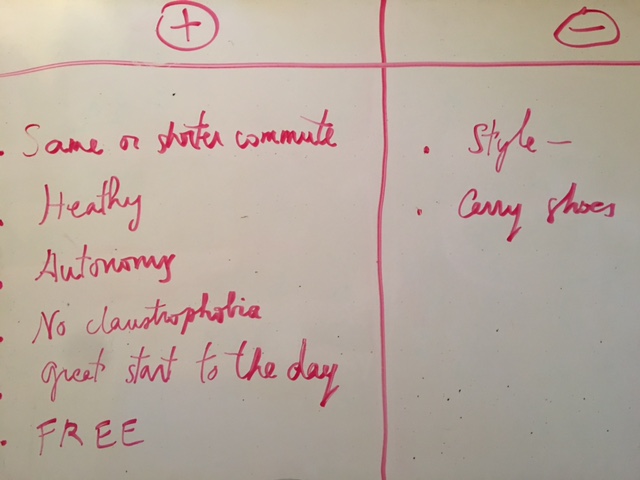 +
−
• Same or shorter commute
• Heathy
• Autonomy
• No claustrophobia
• great start to the day
• FREE
• Style –
• Carry shoes